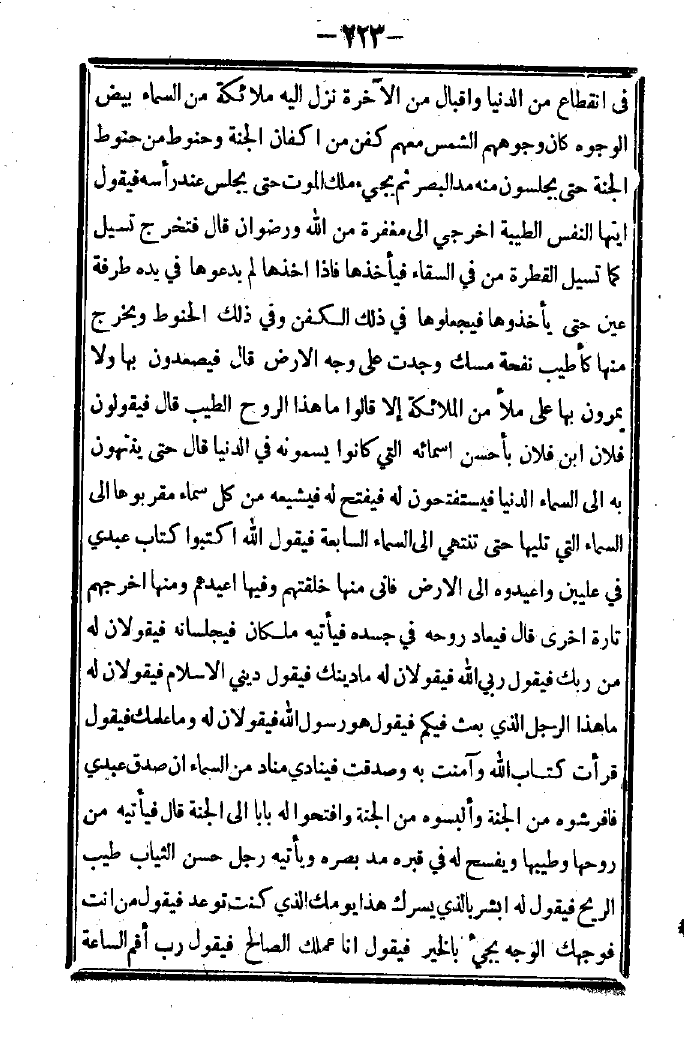 -٧٢٣-
فى انقطاع من الدنيا واقبال من الآخرة نزل اليه ملائكة من السماء بيض
الوجوه كان وجوههم الشمس معهم كفن من اكفان الجنة وحنوط من حنوط
الجنة حتى يجلسون منه مد البصر ثم يجيء ملك الموت حتى يجلس عند رأسه فيقول
ايتها النفس الطيبة اخرجي الى مغفرة من الله ورضوان قال فتخرج تسيل
كما تسيل القطرة من في السقاء فيأخذها فاذا اخذها لم يدعوها في يده طرفة
عين حتى يأخذوها فيجعلوها في ذلك الكفن وفي ذلك الحنوط ويخرج
منها كأطيب نفحة مسك وجدت على وجه الارض قال فيصعدون بها ولا
يمرون بها على ملأ من الملائكة إلا قالوا ما هذا الروح الطيب قال فيقولون
فلان ابن فلان بأحسن اسمائه التي كانوا يسمونه في الدنيا قال حتى ينتهون
به الى السماء الدنيا فيستفتحون له فيفتح له فيشيعه من كل سماء مقربوها الى
السماء التي تليها حتى تنتهي الى السماء السابعة فيقول الله اكتبوا كتاب عبدي
في عليين واعيدوه الى الارض فانى منها خلقتهم وفيها اعيدهم ومنها اخرجهم
تارة اخرى قال فيعاد روحه في جسده فيأتيه ملكان فيجلسانه فيقولان له
من ربك فيقول ربي الله فيقولان له مادينك فيقول ديني الاسلام فيقولان له
ماهذا الرجل الذي بعث فيكم فيقول هو رسول الله فيقولان له وما علمك فيقول
قرأت كتاب الله وآمنت به وصدقت فينادي مناد من السماء ان صدق عبدي
فافرشوه من الجنة وألبسوه من الجنة وافتحوا له بابا الى الجنة قال فيأتيه من
روحها وطيبها ويفسح له في قبره مد بصره ويأتيه رجل حسن الثياب طيب
الريح فيقول له ابشر بالذي يسرك هذا يومك الذي كنت توعد فيقول من انت
فوجهك الوجه يجيء بالخير فيقول انا عملك الصالح فيقول رب أقم الساعة